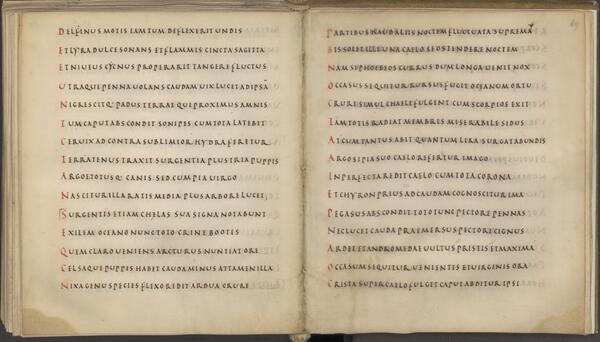 DELFINUS MOTIS IAM TUM DEFLEXERIT UNDIS
ET LYRA DULCE SONANS ET FLAMMIS CINCTA SAGITTA
ET NIUEUS CYCNUS PROPERARIT TANGERE FLUCTUS
UTRAQUE PENNA UOLANS CAUDAM UIX LUCET AD IPSĀ
NIGRESCIT Q· PADUS TERRAE QUI PROXIMUS AMNIS
TUM CAPUT ABSCONDIT SONIPES CUM TOTA LATEBIT
CERUIX AD CONTRA SUBLIMIOR HYDRA FERETUR
TERRA TENUS TRAXIT SURGENTIA PLUSTRIA PUPPIS
ARGOE TOTUS Q· CANIS· SED CUM PIA UIRGO
NASCITUR ILLA RATIS MEDIA PLUS ARBORE LUCET
SURGENTIS ETIAM CHELAS SUA SIGNA NOTABUNT
EXILEM OCEANO NUNC TOTO CRINE BOOTES
QUEM CLARO UENIENS ARCTURUS NUNTIAT ORI
CELSAQUE PUPPIS HABET CAUDA MINUS ATTAMEN ILLA
NIXA GENU SPECIES FLEXO REDIT ARDUA CRURE
69
PARTIBUS HAUD ALIIS NOCTEM FLUCTUATA SUPREMA
BIS SOLET ILLE UNA CAELO SE OSTENDERE NOCTEM
NAM SUP PHOEBEOS CURRUS DUM LONGA UENIT NOX
OCCASUS SEQUITUR RURSUS FUGIT OCEANUM ORTU
CRURE SIMUL CHAELE FULGENT CUM SCORPIOS EXIT
IAM TOTIS RADIAT MEMBRIS MISERABILE SIDUS
AT CUM TANTUS ABIT QUANTUM LIRA SURGAT ABUNDIS
ARGO SIPIA SUO CAELO REFERTUR IMAGO
INPERFECTA REDIT CAELO CUM TOTA CORONA
ET CHYRON PRIUS AD CAUDAM COGNOSCITUR IMA
PEGASUS ABSCONDIT TOTO IUNC PECTORE PENNAS
NEC LUCET CAUDA PRAEMERSUS PECTORE CIGNUS
ARDET ET ANDROMEDAE UULTUS PRISTIS ET MAXIMA
OCCASUM SEQUITUR UENIENTIS ET UIRGINIS ORA
CRISTA SUPER CAELO FULGET CAPUT ABDITUR IPSI